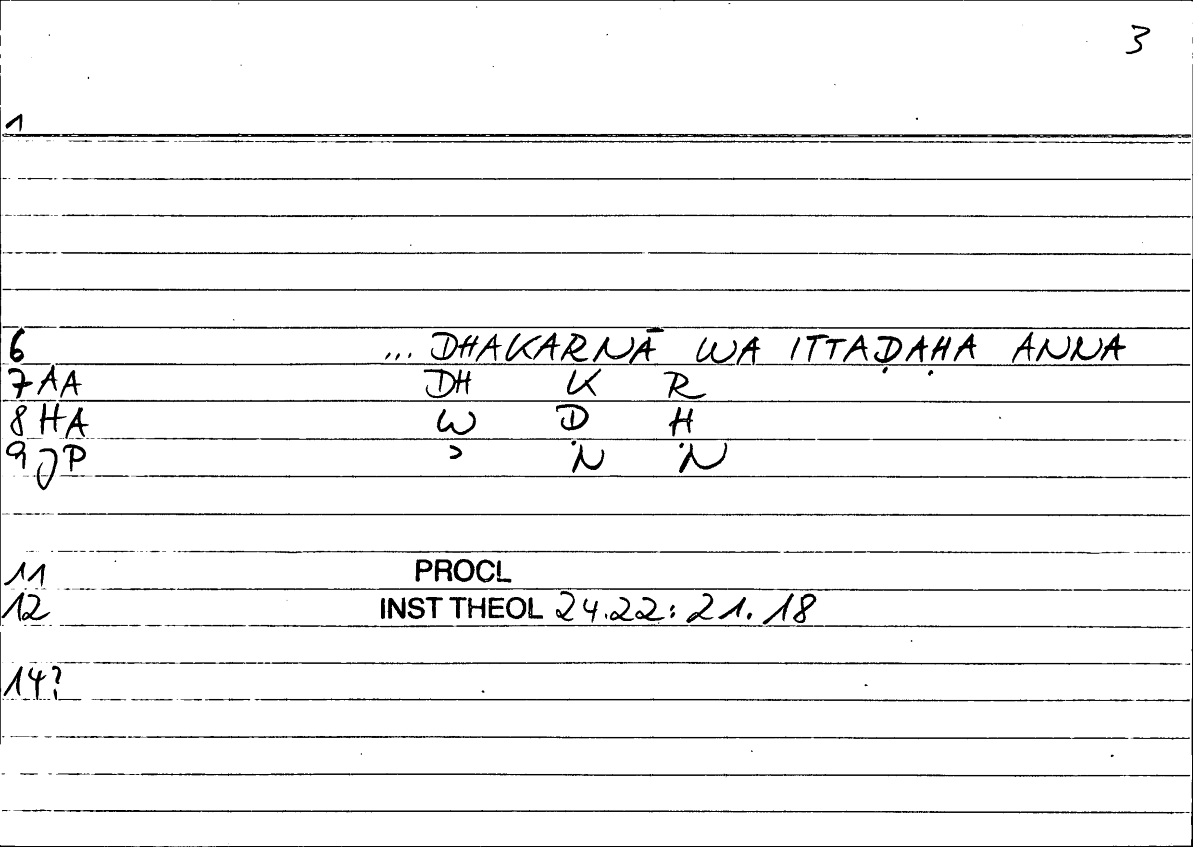 3
1
6 ... DHAKARNĀ WA ITTAḌAḤA ANNA
7 AA DH K R
8 HA W Ḍ Ḥ
9 JP ʾ N N
11 PROCL
12 INST THEOL 24.22: 21.18
14?